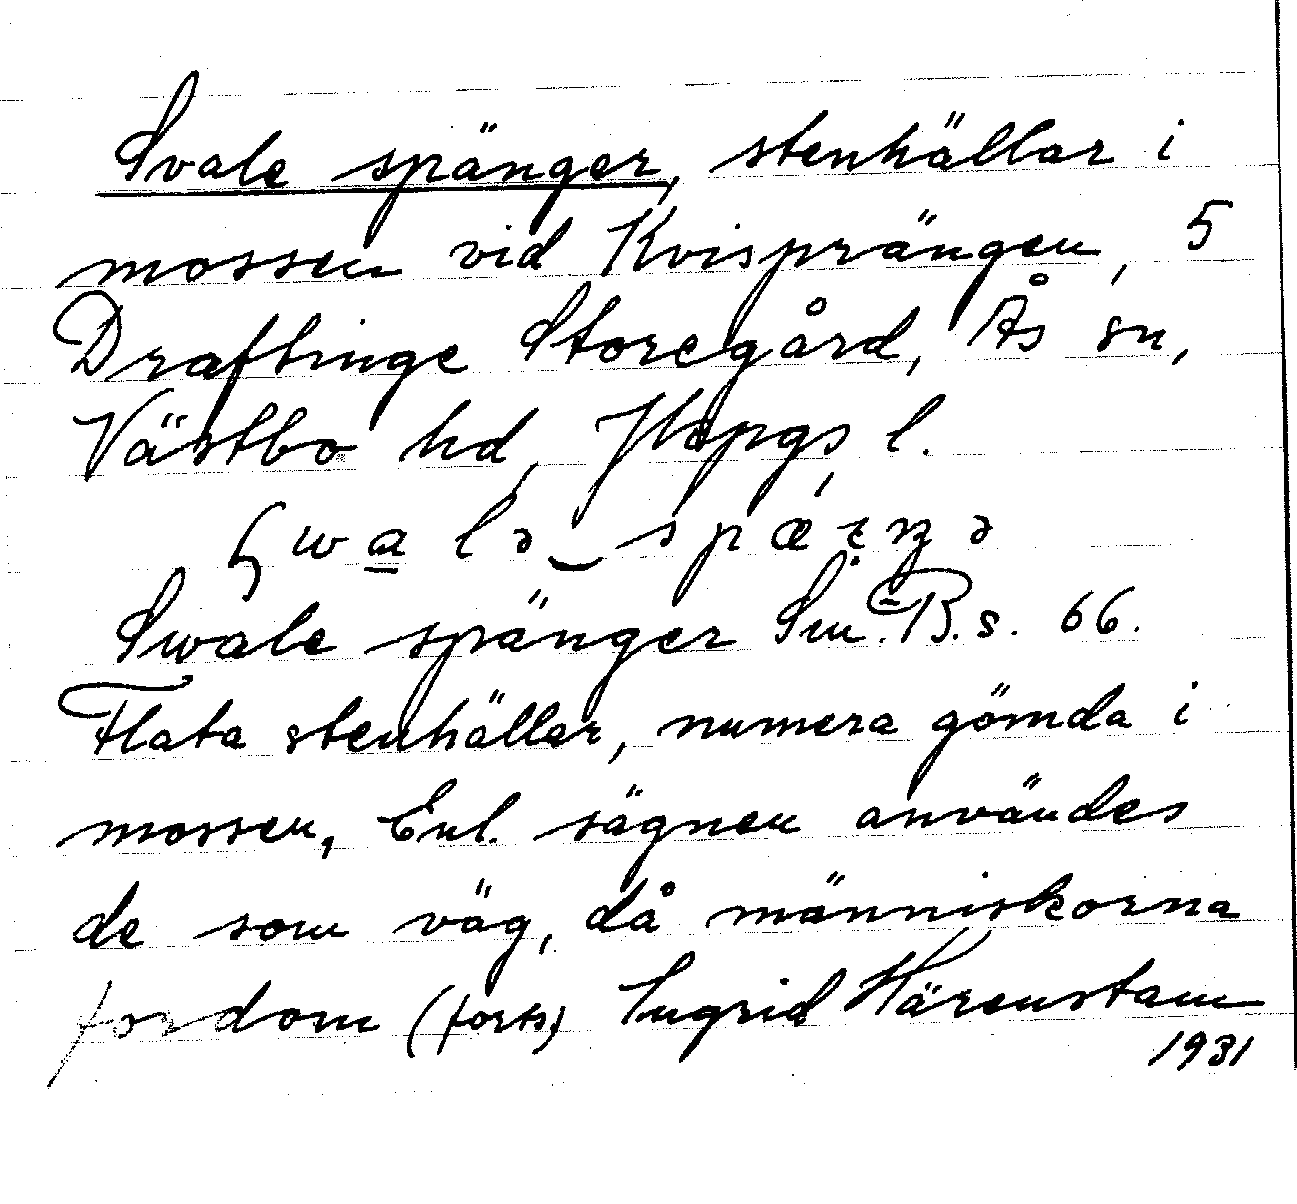 Svale spänger, stenhällar i
mossen vid Kvisprängen, 5
Draftinge Storegård, Ås sn,
Västbo hd, Jkpgs l.
Swale spänger Sm. B. s. 66.
Flata stenhällar, numera gömda i
mossen, Enl. sägnen användes
de som väg, då människorna
fordom (forts) Ingrid Härenstam
1931